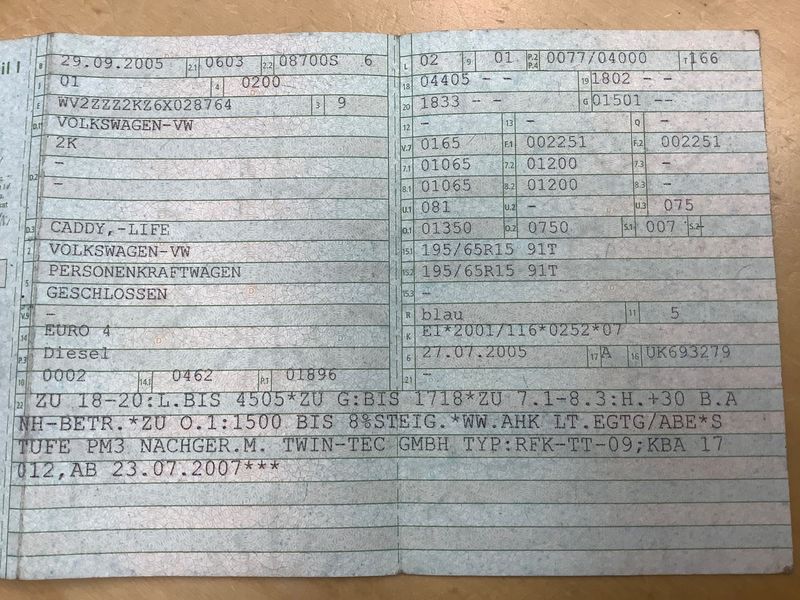 B 29.09.2005 2.1 0603 2.2 08700S 6
J 01 4 0200
E WV2ZZZ2KZ6X028764 3 9
D.1 VOLKSWAGEN-VW
2K
D.2 –
–
D.3 CADDY,-LIFE
2 VOLKSWAGEN-VW
5 PERSONENKRAFTWAGEN
GESCHLOSSEN
V.9 –
14 EURO 4
P.3 Diesel
10 0002 14.1 0462 P.1 01896
L 02 9 01 P.2 P.4 0077/04000 T 166
18 04405 – – 19 1802 – –
20 1833 – – G 01501 ––
12 – 13 – Q –
V.7 0165 F.1 002251 F.2 002251
7.1 01065 7.2 01200 7.3 –
8.1 01065 8.2 01200 8.3 –
U.1 081 U.2 – U.3 075
O.1 01350 O.2 0750 S.1 007 S.2 –
15.1 195/65R15 91T
15.2 195/65R15 91T
15.3 –
R blau 11 5
K E1*2001/116*0252*07
6 27.07.2005 17 A 16 UK693279
21 –
22 ZU 18-20:L.BIS 4505*ZU G:BIS 1718*ZU 7.1-8.3:H.+30 B.A
NH-BETR.*ZU O.1:1500 BIS 8%STEIG.*WW.AHK LT.EGTG/ABE*S
TUFE PM3 NACHGER.M. TWIN-TEC GMBH TYP:RFK-TT-09;KBA 17
012,AB 23.07.2007***